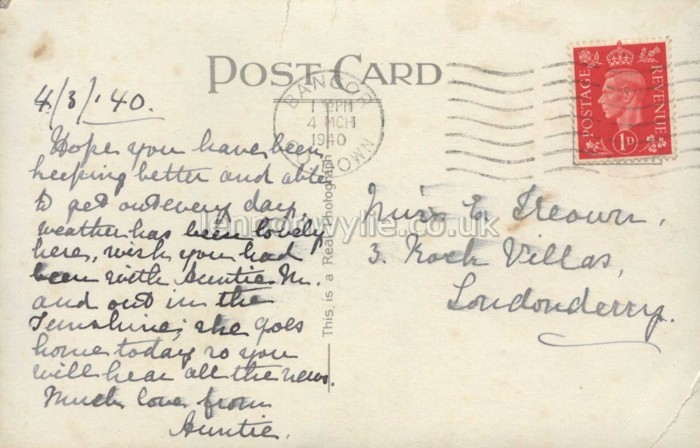 POST CARD
4/3/'40.
Hope you have been
keeping better and able
to get out every day,
weather has been lovely
here, wish you had
been with Auntie M.
and out in the
sunshine; she goes
home today so you
will hear all the news.
Much love from
Auntie.
This is a Real Photograph
BANGOR
1 PM
4 MCH
1940
CO. DOWN
POSTAGE
REVENUE
1D
Miss E.
3. Rock Villas,
Londonderry.
lennonwylie.co.uk